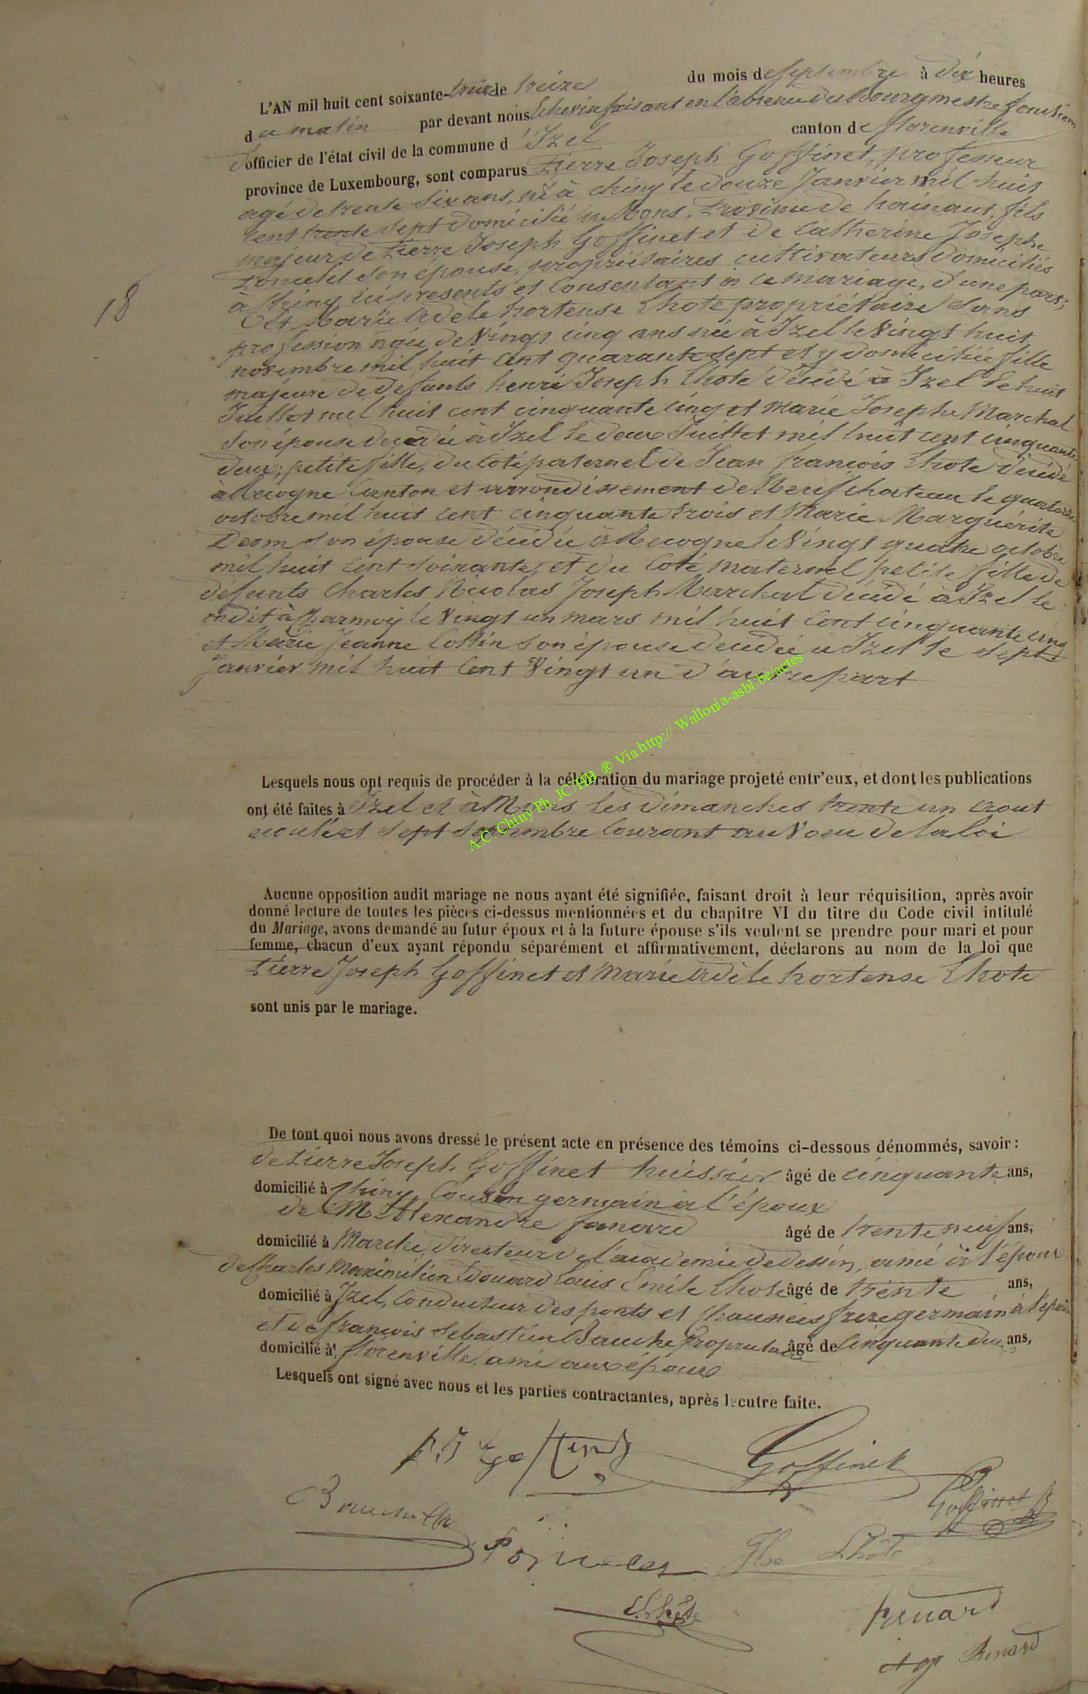 L'AN mil huit cent soixante-treize le treize du mois de septembre à dix heures
du matin par devant nous Echevin faisant en l'absence du Bourgmestre fonction
d'officier de l'état civil de la commune d'Izel canton de florenville
province de Luxembourg, sont comparus Pierre Joseph Goffinet, professeur
agé de trente six ans, né à Chiny le douze Janvier mil huit
cent trente sept domicilié à Mons, province de hainaut, fils
majeur de Pierre Joseph Goffinet et de Catherine Josephe
son épouse, propriétaires cultivateurs domiciliés
à Chiny ici présents et consentant à ce mariage, d'une part;
18
Et Marie Adèle hortense Lhote propriétaire sans
profession agée de Vingt cinq ans née à Izel le Vingt huit
novembre mil huit cent quarante sept et y domiciliée fille
majeure de defunts henri Joseph Lhote décédé à Izel le huit
Juillet mil huit cent cinquante cinq et Marie Josephe Marchal
son épouse décédée à Izel le deux Juillet mil huit cent cinquante
deux; petite fille, du coté paternel de Jean françois Lhote décédé
à Recogne canton et arrondissement de Neufchateau le quatorze
octobre mil huit cent cinquante trois et Marie Marguérite
Deom son épouse décédée à Recogne le Vingt quatre octobre
mil huit cent soixante, et du coté maternel petite fille de
défunts Charles Nicolas Joseph Marchal décédé à Izel le
le Vingt un mars mil huit cent cinquante cinq
et Marie Jeanne Collin son épouse décédée à Izel le sept
Janvier mil huit cent Vingt un d'autre part
Lesquels nous ont requis de procéder à la célébration du mariage projeté entr'eux, et dont les publications
ont été faites à Izel et à Mons les dimanches trente un aout
écoulé et sept septembre courant au Voeu de la loi
A.C. Chiny Ph. JC HD ® Via http:// Wallonia-asbl.be/actes
Aucune opposition audit mariage ne nous ayant été signifiée, faisant droit à leur réquisition, après avoir
donné lecture de toutes les pièces ci-dessus mentionnées et du chapitre VI du titre du Code civil intitulé
du Mariage, avons demandé au futur époux et à la future épouse s'ils veulent se prendre pour mari et pour
femme, chacun d'eux ayant répondu séparément et affirmativement, déclarons au nom de la loi que
Pierre Joseph Goffinet et Marie Adèle hortense Lhote
sont unis par le mariage.
De tout quoi nous avons dressé le présent acte en présence des témoins ci-dessous dénommés, savoir :
de Pierre Joseph Goffinet huissier âgé de cinquante ans,
domicilié à Chiny, Cousin germain à l'époux
de M Alexandre fanard âgé de trente neuf ans,
domicilié à Marche, directeur de l'académie de dessin, amé à l'époux
de Charles Maximilien Edouard Louis Emile Lhote âgé de trente ans,
domicilié à Izel, Conducteur des ponts et chaussées frère germain à l'épouse
et de françois Sebastien Bauche Propriétaire âgé de cinquante deux ans,
domicilié à florenville, ami aux époux
Lesquels ont signé avec nous et les parties contractantes, après lecutre faite.
Goffinet
Goffinet
Lhote
Lhote
fanard